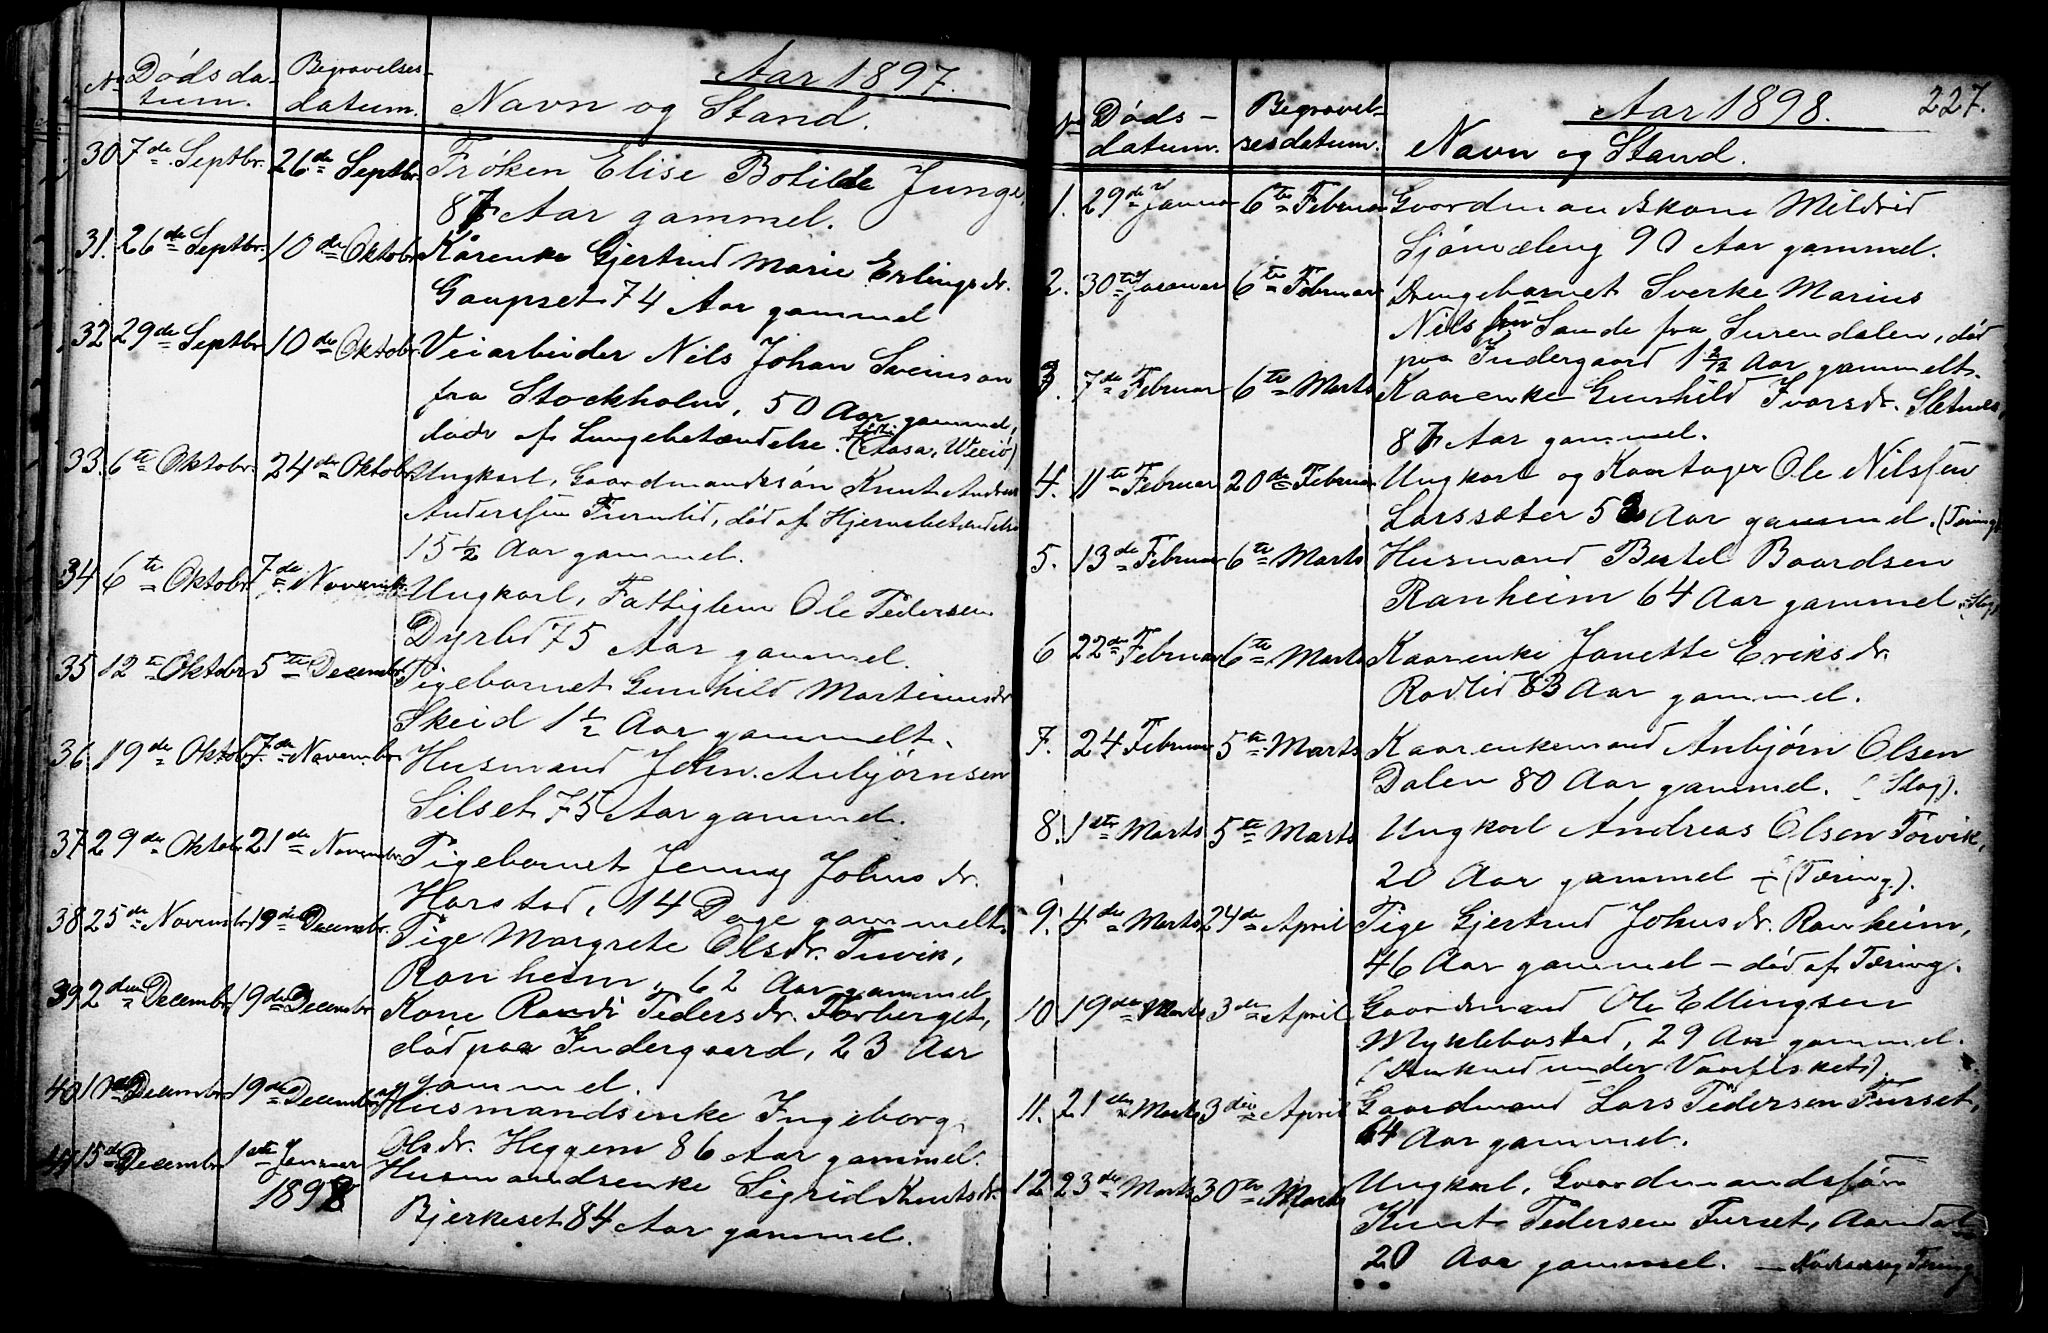 Aar 1897.
No Dødsda-
tum.
Begravelses-
datum.
Navn og Stand.
30 7de Septbr. 26de Septbr. Frøken Elise Botilde Junge,
87 Aar gammel.
31. 26de Septbr. 10de Oktobr Kårenke Gjertrud Marie Erlingsdr.
Gaupset 74 Aar gammel
32 29de Septbr 10de Oktobr Veiarbeider Nils Johan Sveinson
fra Stockholm, 50 Aar gammel,
døde af Lungebetændelse.
33. 6te Oktobr. 24de Oktobr. Ungkarl, Gaardmandssøn Knut Andreas
Anderssen Furulid, død af Hjernebetændelse
15 1/2 Aar gammel.
34 6te Oktobr 7de Novembr. Ungkarl, Fattiglem Ole Pedersen
Dyrlid 75 Aar gammel.
35 12te Oktobr 5te Decembr. Pigebarnet Gunhild Martinusdr.
Skeid 1 1/2 Aar gammelt.
36 19de Oktobr 7de Novembr. Husmand John Anbjørnsen
Silset 75 Aar gammel.
37 29de Oktobr 21de Novembr. Pigebarnet Jenny Johnsdr.
Harstad, 14 Dage gammelt.
38 25de Novembr 19de Decembr. Pige Margrete Olsdr. Turvik,
Ranheim, 62 Aar gammel
39 2den Decembr 19de Decembr Kone Randi Pedersdr. Forberget,
død paa Indergaard, 23 Aar
gammel.
40 10de Decembr 19de Decembr Husmandsenke Ingeborg
Olsdr. Heggem 86 Aar gammel.
41 15de Decembr 1ste Januar Husmandsenke Sigrid Knutsdr.
1898 Bjerkeset 84 Aar gammel.
Aar 1898. 227.
No Døds-
datum.
Begravel-
sesdatum.
Navn og Stand.
1. 29de Januar 6te Februar Gaardmandskone Mildrid
Sjømæling 90 Aar gammel.
2. 30te Januar 6te Februar Drengebarnet Sverke Marius
Nils Sande fra Surendalen, død
paa Indergaard 1 2/12 Aar gammelt.
3. 7de Februar 6te Marts Kaarenke Gunhild Ivarsdr. Sletnes,
87 Aar gammel.
4. 11te Februar 20de Februar Ungkarl og Kaartager Ole Nilssen
Larssæter 52 Aar gammel. (Tæring)
5. 13de Februar 6te Marts Husmand Bertel Baardsen
Ranheim 64 Aar gammel. (Slag)
6 22de Februar 6te Marts Kaarenke Janette Eriksdr.
Rødlid 83 Aar gammel.
7. 24 Februar 5te Marts Kaarenkemand Anbjørn Olsen
Dalen 80 Aar gammel. (Slag).
8. 1ste Marts 5te Marts Ungkarl Andreas Olsen Torvik,
20 Aar gammel (Tæring).
9. 4de Marts 24de April Pige Gjertrud Johnsdr. Ranheim,
46 Aar gammel – død af Tæring.
10 19de Marts 3die April Gaardmand Ole Ellingsen
Myklebostad, 29 Aar gammel.
(Druknet under Vaarfisket).
11. 21de Marts 3die April Gaardmand Lars Pedersen Furset,
64 Aar gammel.
12. 23de Marts 30te Marts Ungkarl, Gaardmandssøn
Knut Pedersen Furset,
20 Aar gammel. – Tæring